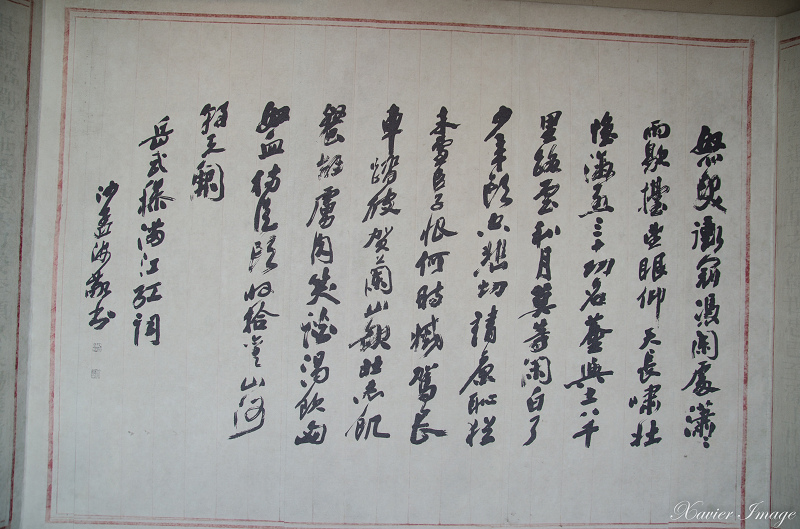 怒髮衝冠憑闌處瀟〻
雨歇擡望眼仰天長嘯壯
懷激烈三十功名塵與土八千
里路雲和月莫等閑白了
少年頭空悲切靖康恥猶
未雪臣子恨何時滅駕長
車踏破賀蘭山缺壯志飢
餐胡虜肉笑談渴飲匈
奴血待從頭收拾舊山河
朝天闕
岳武穆滿江紅詞
沙孟海敬書
Xavier Image